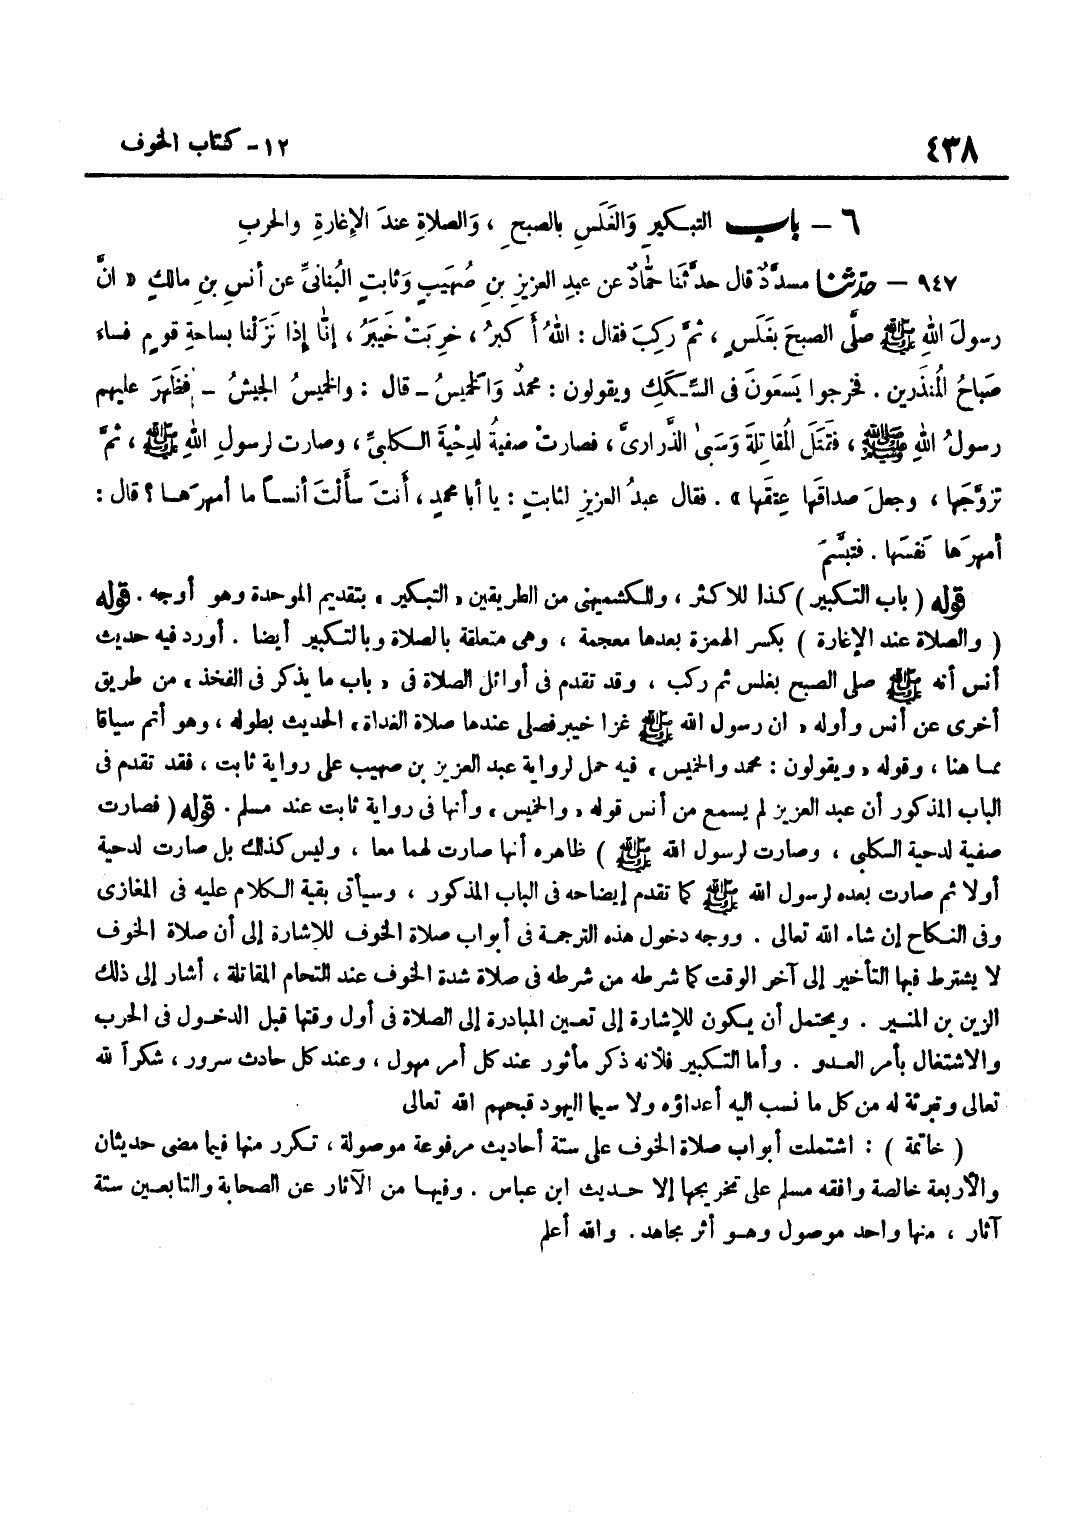 ٤٣٨
١٢- كتاب الخوف
٦ – باب التبكيرِ والغَلَسِ بالصبحِ ، والصلاةِ عندَ الإِغارةِ والحربِ
٩٤٧ – حدّثنا مسدَّدٌ قال حدَّثَنا حمَّادٌ عن عبدِ العزيزِ بنِ صُهَيبٍ وَثابتٍ البُنانىِّ عن أنسِ بنِ مالكٍ « انَّ
رسولَ اللهِ ﷺ صلَّى الصبحَ بغَلَسٍ ، ثمَّ ركِبَ فقال : اللهُ أكبرُ ، خرِبَتْ خَيبَرُ ، إنَّا إذا نَزَلْنا بساحةِ قومٍ فساء
صَباحُ المُنذَرين . فخرجوا يَسعَونَ فى السِّكَكِ ويقولون : محمدٌ وَالخميسُ – قال : والخميسُ الجيشُ – فظَهَرَ عليهم
رسولُ اللهِ ﷺ ، فقَتَلَ المُقاتِلةَ وَسَبىٰ الذَّرارىَّ ، فصارتْ صفيةُ لدِحْيةَ الكلبىِّ ، وصارت لرسولِ اللهِ ﷺ ، ثمَّ
تزوَّجَها ، وجعلَ صداقَها عِتقَها » . فقال عبدُ العزيزِ لثابتٍ : يا أبا محمدٍ ، أنتَ سألْتَ أنساً ما أمهرَها ؟ قال :
أمهرَها نَفسَها . فتبسَّمَ
قوله ( باب التكبير ) كذا للاكثر ، وللكشميهنى من الطريقين « التبكير » بتقديم الموحدة وهو أوجه . قوله
( والصلاة عند الإغارة ) بكسر الهمزة بعدها معجمة ، وهى متعلقة بالصلاة وبالتكبير أيضا . أورد فيه حديث
أنس أنه ﷺ صلى الصبح بغلس ثم ركب ، وقد تقدم فى أوائل الصلاة فى « باب ما يذكر فى الفخذ » من طريق
أخرى عن أنس وأوله « ان رسول الله ﷺ غزا خيبر فصلى عندها صلاة الغداة » الحديث بطوله ، وهو أتم سياقا
مما هنا ، وقوله « ويقولون : محمد والخميس » فيه حمل لرواية عبد العزيز بن صهيب على رواية ثابت ، فقد تقدم فى
الباب المذكور أن عبد العزيز لم يسمع من أنس قوله « والخميس » وأنها فى رواية ثابت عند مسلم . قوله ( فصارت
صفية لدحية الكلبى ، وصارت لرسول الله ﷺ ) ظاهره أنها صارت لهما معا ، وليس كذلك بل صارت لدحية
أولا ثم صارت بعده لرسول الله ﷺ كما تقدم إيضاحه فى الباب المذكور ، وسيأتى بقية الكلام عليه فى المغازى
وفى النكاح إن شاء الله تعالى . ووجه دخول هذه الترجمة فى أبواب صلاة الخوف للاشارة إلى أن صلاة الخوف
لا يشترط فيها التأخير إلى آخر الوقت كما شرطه من شرطه فى صلاة شدة الخوف عند التحام المقاتلة ، أشار إلى ذلك
الزين بن المنير . ويحتمل أن يكون للإشارة إلى تعين المبادرة إلى الصلاة فى أول وقتها قبل الدخول فى الحرب
والاشتغال بأمر العدو . وأما التكبير فلأنه ذكر مأثور عند كل أمر مهول ، وعند كل حادث سرور ، شكراً لله
تعالى وتبرئة له من كل ما نسب اليه أعداؤه ولا سيما اليهود قبحهم الله تعالى
( خاتمة ) : اشتملت أبواب صلاة الخوف على ستة أحاديث مرفوعة موصولة ، تكرر منها فيما مضى حديثان
والأربعة خالصة وافقه مسلم على تخريجها إلا حديث ابن عباس . وفيها من الآثار عن الصحابة والتابعين ستة
آثار ، منها واحد موصول وهو أثر مجاهد . والله أعلم